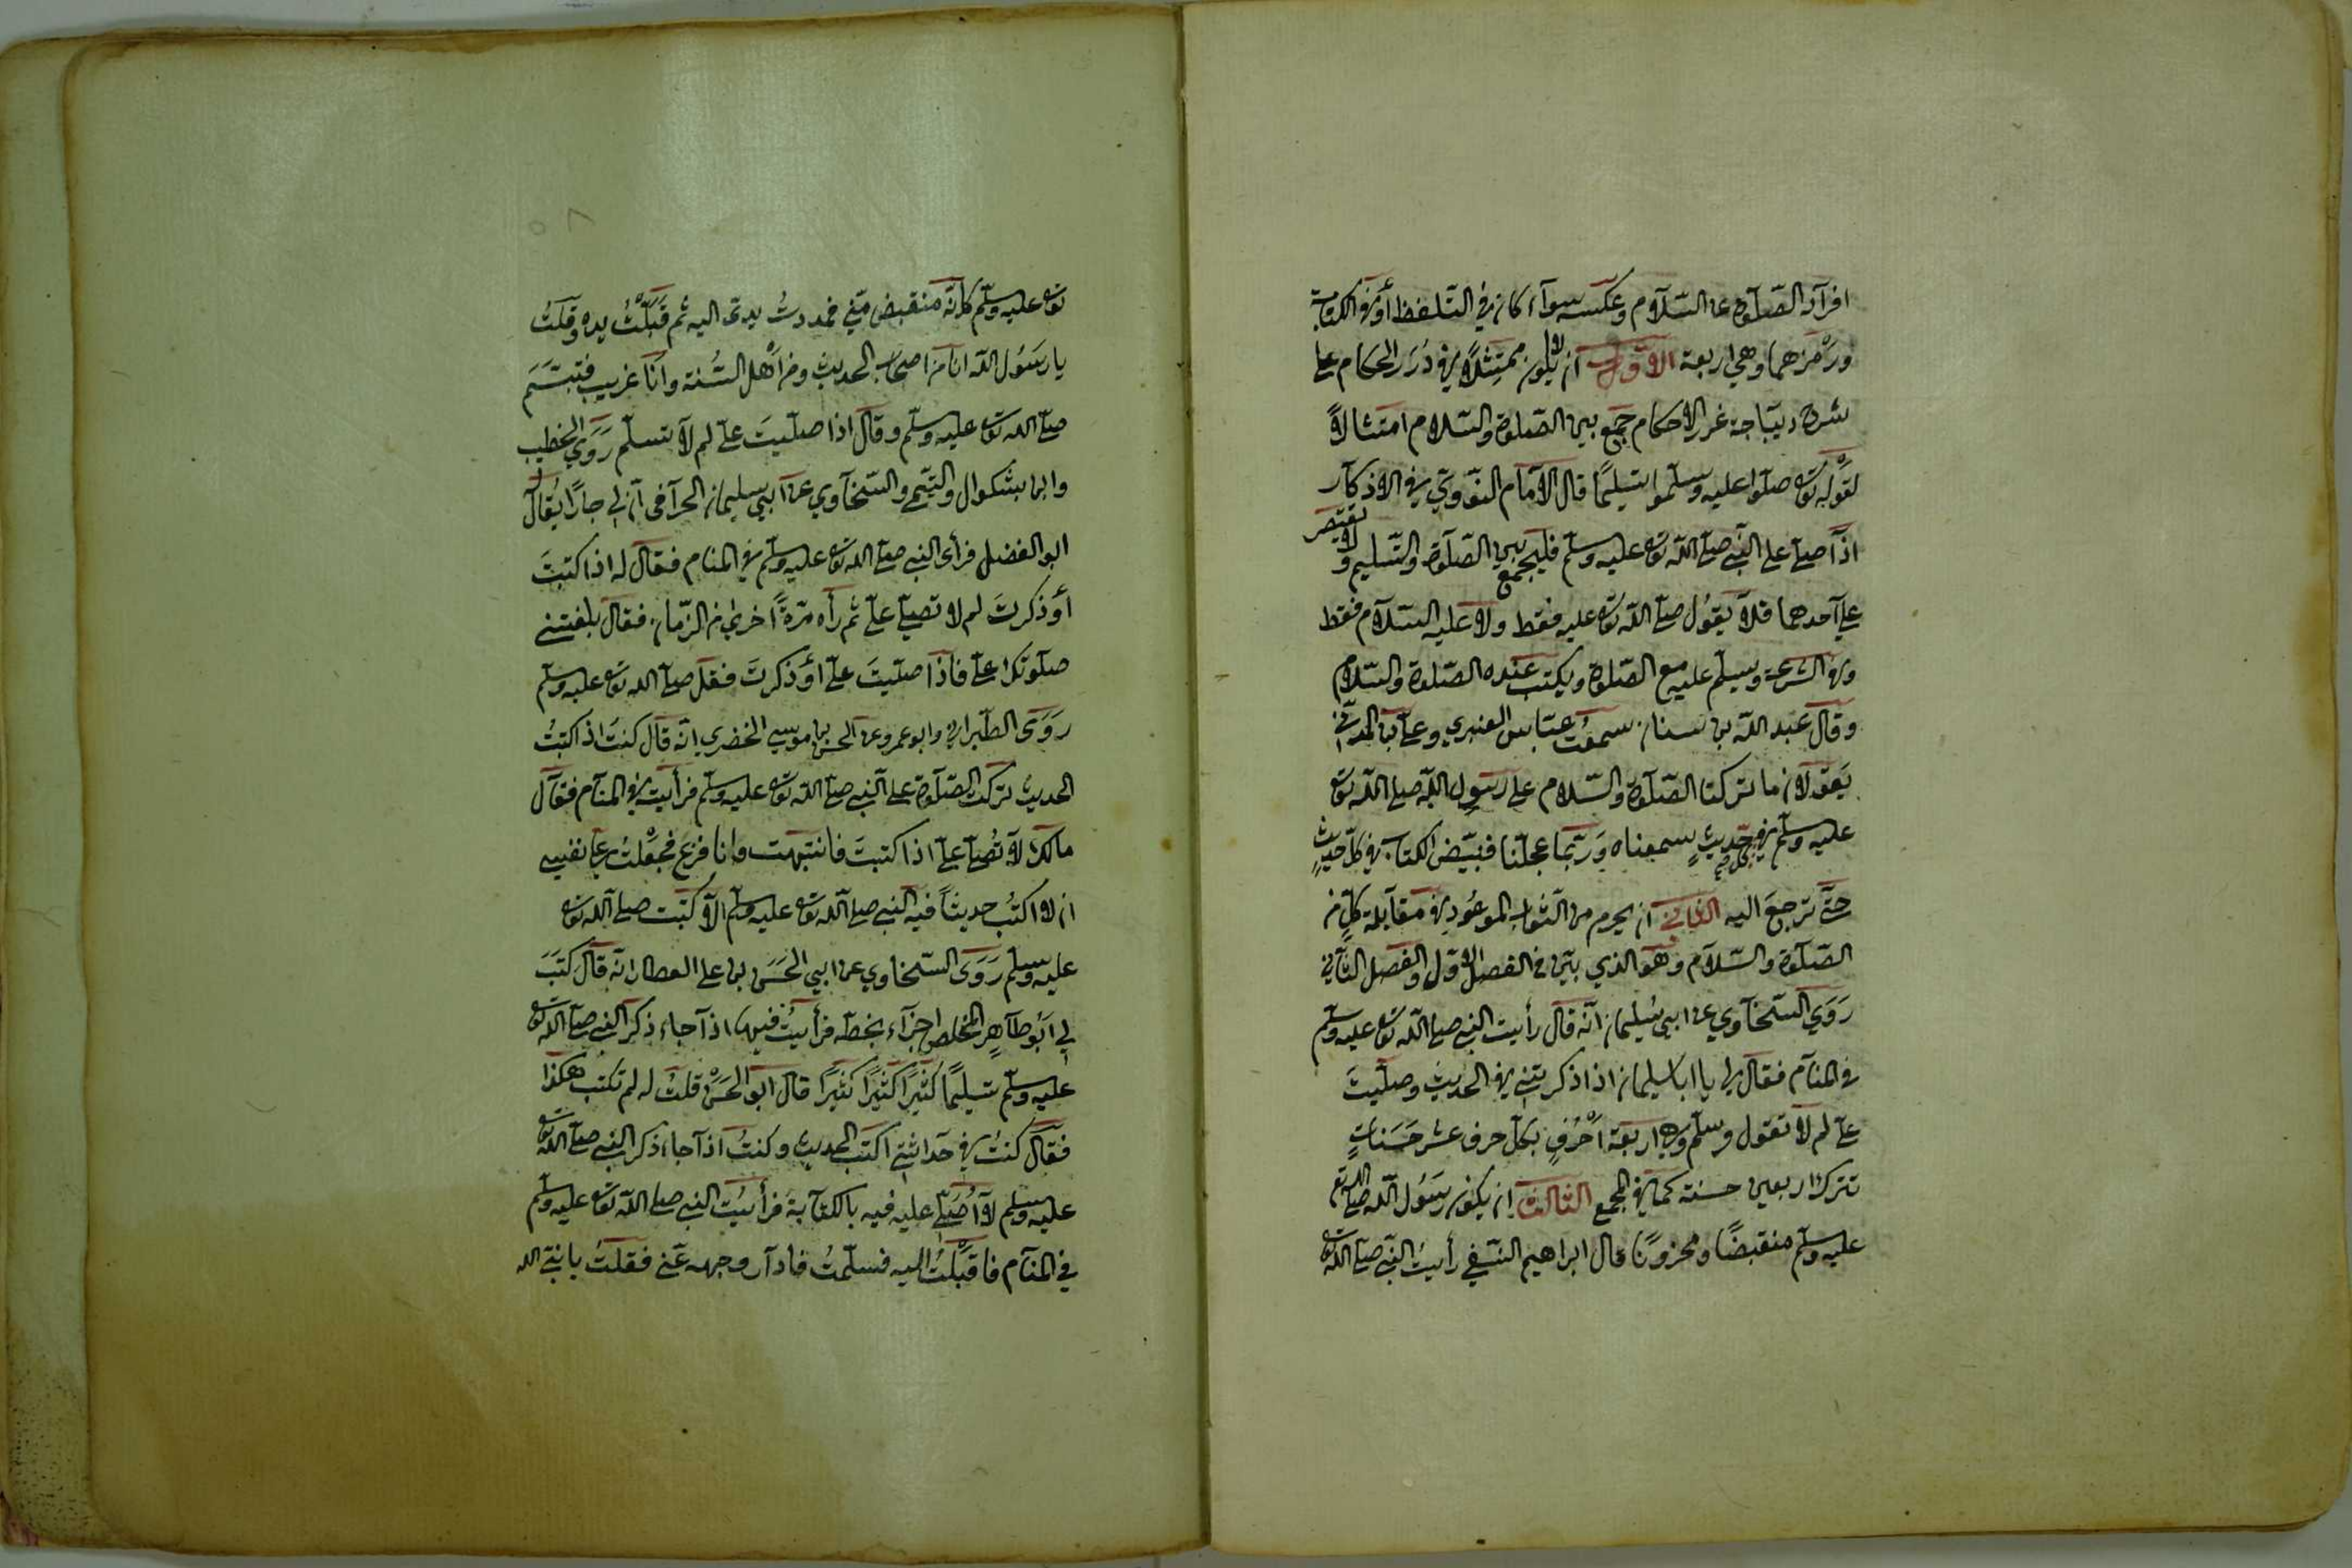 افراد الصّلوة عن السّلام وعكسه سوآء كان في التّلفظ أو في الكتابة
ورمزهما وهي اربعة الاوّل ان لا يكون ممتثلًا في دُرَر الحكام على
شرح ديباجة غرر الاحكام جمع بين الصّلوة والسّلام امتثالًا
لقوله تعا صلّوا عليه وسلّموا تسليمًا قال الامام النّووي في الاذكار
اذا صلّى على النّبي صلّى الله تعا عليه وسلّم فليجمع بين الصّلوة والتّسليم ولا يقتصر
على احدهما فلا يقول صلّى الله تعا عليه فقط ولا عليه السّلام فقط
وفي الشرعة ويسلّم عليه مع الصّلوة ويكتب عنده الصّلوة والسّلام
وقال عبد الله بن سنان سمعت عبّاس العنبري وعلي بن المديني
يقولان ما تركنا الصّلوة والسّلام على رسول الله صلّى الله تعا
عليه وسلّم في كل حديث سمعناه وربّما عجلنا فنبيّض الكتاب في كلّ حديث
حتّى نرجع اليه الثاني ان يحرم من الثواب الموعود في مقابلة كلّ من
الصّلوة والسّلام وهو الذي بيّن في الفصل الاوّل والفصل الثّاني
رَوَى السّخاوي عن ابي سُليمان انّه قال رأيت النبي صلّى الله تعا عليه وسلّم
في المنام فقال لي يا ابا سليمان اذا ذكرتني في الحديث وصلّيتَ
عليّ لم لا تقول وسلّم وهي اربعة احرُفٍ بكلّ حرف عشر حَسَناتٍ
تترك اربعين حسنة كما في المجمع الثالث ان يكون رسُول الله صلّى الله تع
عليه وسلّم منقبضًا ومحزونًا قال ابراهيم النسفي رأيتُ النّبي صلّى الله تعا
تعا عليه وسلّم كانّه منقبض منّي فمددتُ يدي اليه ثم قبّلتُ يده وقلتُ
يا رسُول الله انا من اصحاب الحديث ومن اهل السُّنة وانا غريب فتبسّم
صلّى الله تعا عليه وسلّم وقال اذا صلّيتَ عليّ لم لا تسلّم رَوَى الخطيب
وابن بشكوال والتيمي والسّخاوي عن ابي سليمان الحرّاني ان لي جارًا يقال له
ابو الفضل فرأى النبي صلّى الله تعا عليه وسلّم في المنام فقال له اذا كتبتَ
أو ذكرتَ لم لا تصلّي عليّ ثم رأه مرّةً اخرى من الزّمان فقال بلغتني
صلوتك عليّ فاذا صلّيتَ عليّ أو ذكرتَ فقل صلّى الله تعا عليه وسلّم
رَوَى الطّبراني وابو عمرو عن الحسن بن موسى الخضري انّه قال كنتُ اذا كتبتُ
الحديث تركت الصّلوة على النّبي صلّى الله تعا عليه وسلّم فرأيتُ في المنام فقال
مالك لا تُصلّي عليّ اذا كتبتَ فانتبهت وانا فزع فجعلتُ على نفسي
ان لا اكتُب حديثًا فيه النبي صلّى الله تعا عليه وسلّم الّا كتبت صلّى الله تعا
عليه وسلّم رَوَى السّخاوي عن ابي الحَسَن بن علي العطار انّه قال كتَبَ
لي ابُو طاهر المخلص اجزآء بخطّه فرأيتُ فيها اذا جاء ذكر النبي صلّى الله تعا
عليه وسلّم تسليمًا كثيرًا كثيرًا كثيرًا قال ابو الحَسَن قلتُ له لم تكتب هكذا
فقال كنتُ في حداثتي اكتب الحديث وكنتُ اذا جاء ذكر النبي صلّى الله تعا
عليه وسلّم لا أُصَلّي عليه فيه بالكتابة فرأيتُ النبي صلّى الله تعا عليه وسلّم
في المنام فاقبلتُ اليه فسلّمتُ فادار وجهه عنّي فقلتُ يا نبيّ الله